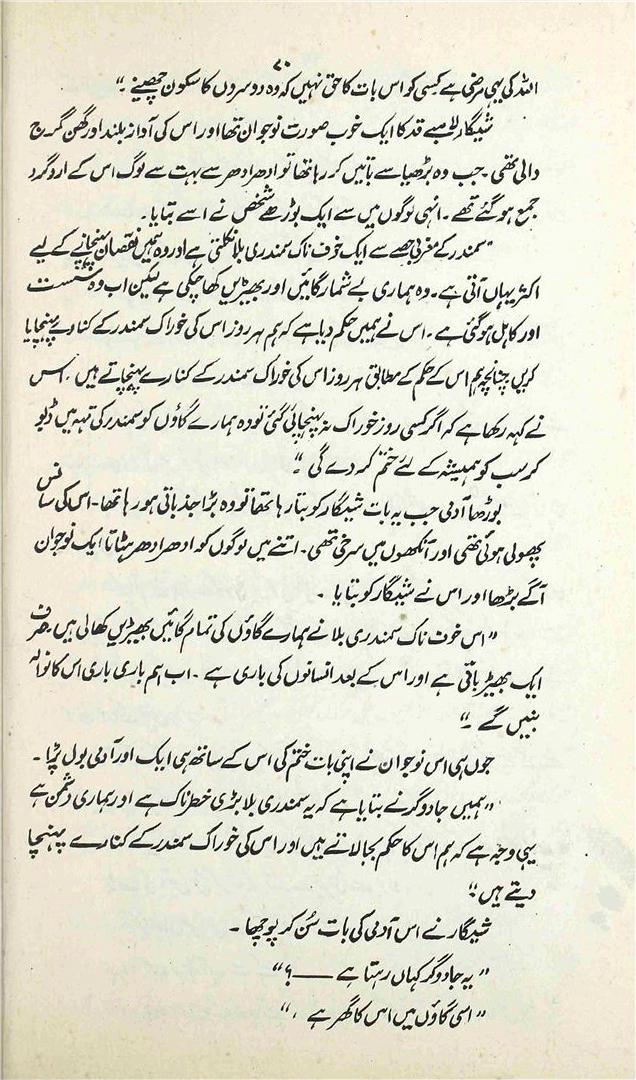 ۷۰
اللہ کی یہی مرضی ہے کسی کو اس بات کا حق نہیں کہ وہ دوسروں کا سکون چھینے ۔"
شیگار لمبے قد کا ایک خوب صورت نوجوان تھا اور اس کی آواز بلند اور گھن گرج
والی تھی ۔ جب وہ بڑھیا سے باتیں کر رہا تھا تو ادھر ادھر سے بہت سے لوگ اس کے اردگرد
جمع ہو گئے تھے ۔ انہی لوگوں میں سے ایک بوڑھے شخص نے اسے بتایا ۔
"سمندر کے مغربی حصے سے ایک خوف ناک سمندری بلا نکلتی ہے اور وہ ہمیں نقصان پہنچانے کے لیے
اکثر یہاں آتی ہے ۔ وہ ہماری بے شمار گائیں اور بھیڑیں کھا چکی ہے لیکن اب وہ سست
اور کاہل ہو گئی ہے ۔ اس نے ہمیں حکم دیا ہے کہ ہم ہر روز اس کی خوراک سمندر کے کنارے پہنچایا
کریں چنانچہ ہم اس کے حکم کے مطابق ہر روز اس کی خوراک سمندر کے کنارے پہنچاتے ہیں ۔ اس
نے کہہ رکھا ہے کہ اگر کسی روز خوراک نہ پہنچائی گئی تو وہ ہمارے گاؤں کو سمندر کی تہہ میں ڈبو
کر سب کو ہمیشہ کے لئے ختم کر دے گی ۔"
بوڑھا آدمی جب یہ بات شیگار کو بتا رہا تھا تو وہ بڑا جذباتی ہو رہا تھا ۔ اس کی سانس
پھولی ہوئی تھی اور آنکھوں میں سرخی تھی ۔ اتنے میں لوگوں کو ادھر ادھر ہٹاتا ایک نوجوان
آگے بڑھا اور اس نے شیگار کو بتایا ۔
"اس خوف ناک سمندری بلا نے ہمارے گاؤں کی تمام گائیں بھیڑیں کھا لی ہیں ۔ صرف
ایک بھیڑ باقی ہے اور اس کے بعد انسانوں کی باری ہے ۔ اب ہم باری باری اس کا نوالہ
بنیں گے ۔"
جوں ہی اس نوجوان نے اپنی بات ختم کی اس کے ساتھ ہی ایک اور آدمی بول پڑا ۔
"ہمیں جادوگر نے بتایا ہے کہ یہ سمندری بلا بڑی خطرناک ہے اور ہماری دشمن ہے
یہی وجہ ہے کہ ہم اس کا حکم بجا لاتے ہیں اور اس کی خوراک سمندر کے کنارے پہنچا
دیتے ہیں ۔"
شیگار نے اس آدمی کی بات سُن کر پوچھا ۔
"یہ جادوگر کہاں رہتا ہے ——؟"
"اسی گاؤں میں اس کا گھر ہے ۔"